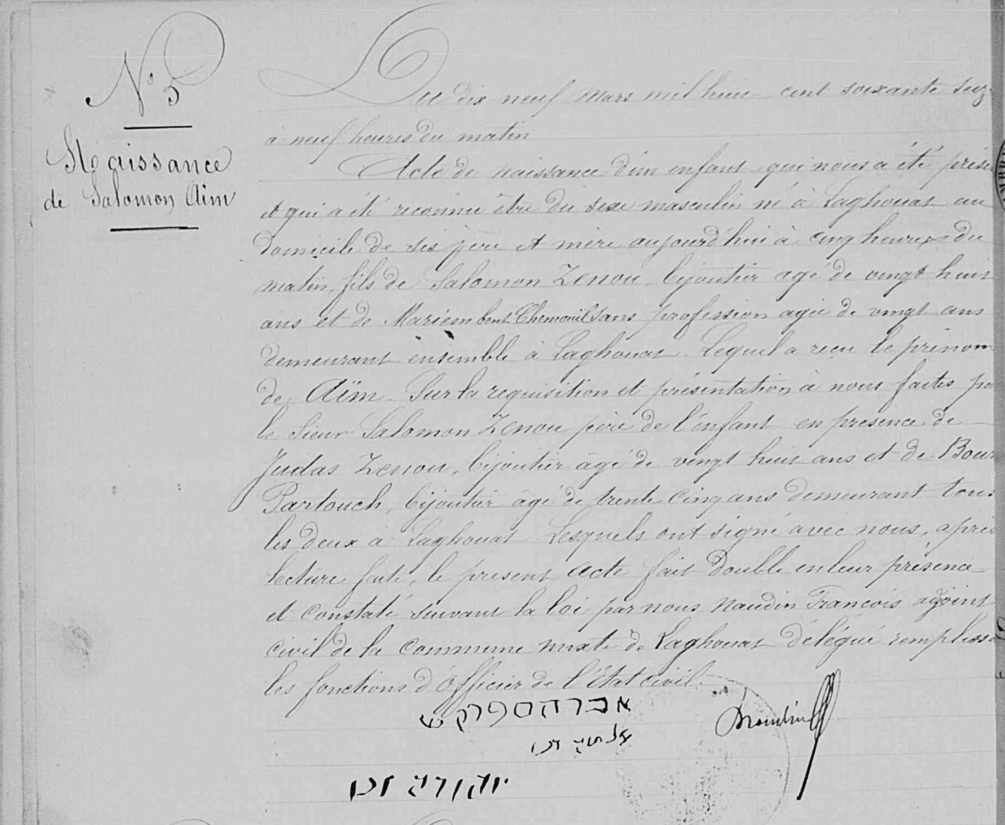 N° 5
Naissance
de Salomon Aïm
Du dix neuf Mars mil huit cent soixante seiz
à neuf heures du matin
Acte de naissance d'un enfant qui nous a été prése
et qui a été reconnu être du sexe masculin né à Laghouat au
domicile de ses père et mère aujourd'hui à cinq heures du
matin, fils de Salomon Zenou, bijoutier agé de vingt huit
ans et de Mariem bent Chemouil sans profession agée de vingt ans
demeurant ensemble à Laghouat. Lequel a reçu le prénom
de Aïm. Sur la requisition et présentation à nous faites pa
le Sieur Salomon Zenou père de l'enfant en presence de
Judas Zenou, bijoutier âgé de vingt huit ans et de Bour
Partouch, bijoutier âgé de trente cinq ans demeurant tous
les deux à Laghouat Lesquels ont signé avec nous, après
lecture faite, le present acte fait double en leur présence
et constaté suivant la loi par nous Naudin François adjoint
civil de la Commune mixte de Laghouat délégué remplissa
les fonctions d'Officier de l'Etat civil.
יהודה זנו